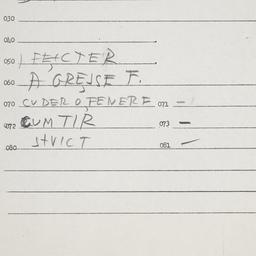 030
040
050 FEHCTER
060 A GREJSE F.
070 CUDER O FENERE 071 –
072 CUM TIR 073 –
080 SHVICT 081